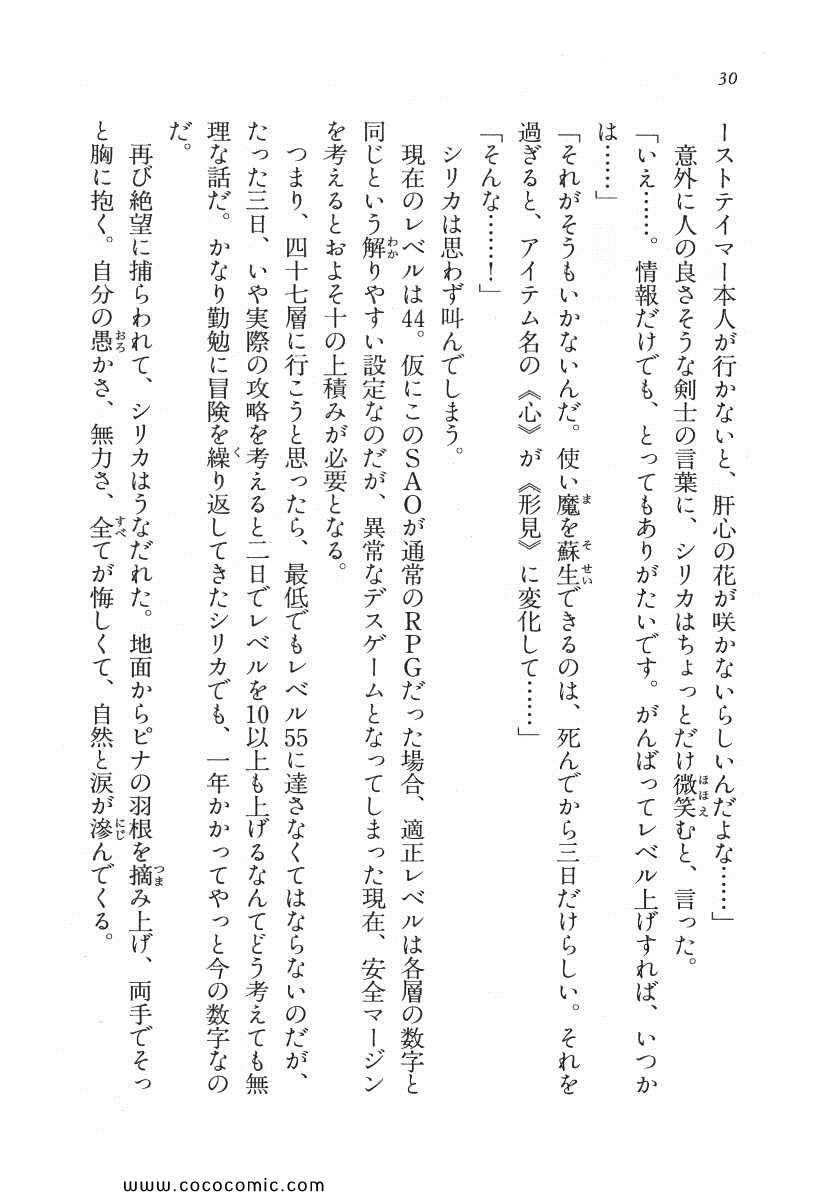 30
ーストテイマー本人が行かないと、肝心の花が咲かないらしいんだよな……」
意外に人の良さそうな剣士の言葉に、シリカはちょっとだけ微笑むと、言った。
「いえ……。情報だけでも、とってもありがたいです。がんばってレベル上げすれば、いつか
は……」
「それがそうもいかないんだ。使い魔を蘇生できるのは、死んでから三日だけらしい。それを
過ぎると、アイテム名の《心》が《形見》に変化して……」
「そんな……！」
シリカは思わず叫んでしまう。
現在のレベルは44。仮にこのSAOが通常のRPGだった場合、適正レベルは各層の数字と
同じという解りやすい設定なのだが、異常なデスゲームとなってしまった現在、安全マージン
を考えるとおよそ十の上積みが必要となる。
つまり、四十七層に行こうと思ったら、最低でもレベル55に達さなくてはならないのだが、
たった三日、いや実際の攻略を考えると二日でレベルを10以上も上げるなんてどう考えても無
理な話だ。かなり勤勉に冒険を繰り返してきたシリカでも、一年かかってやっと今の数字なの
だ。
再び絶望に捕らわれて、シリカはうなだれた。地面からピナの羽根を摘み上げ、両手でそっ
と胸に抱く。自分の愚かさ、無力さ、全てが悔しくて、自然と涙が滲んでくる。
www.cococomic.com/